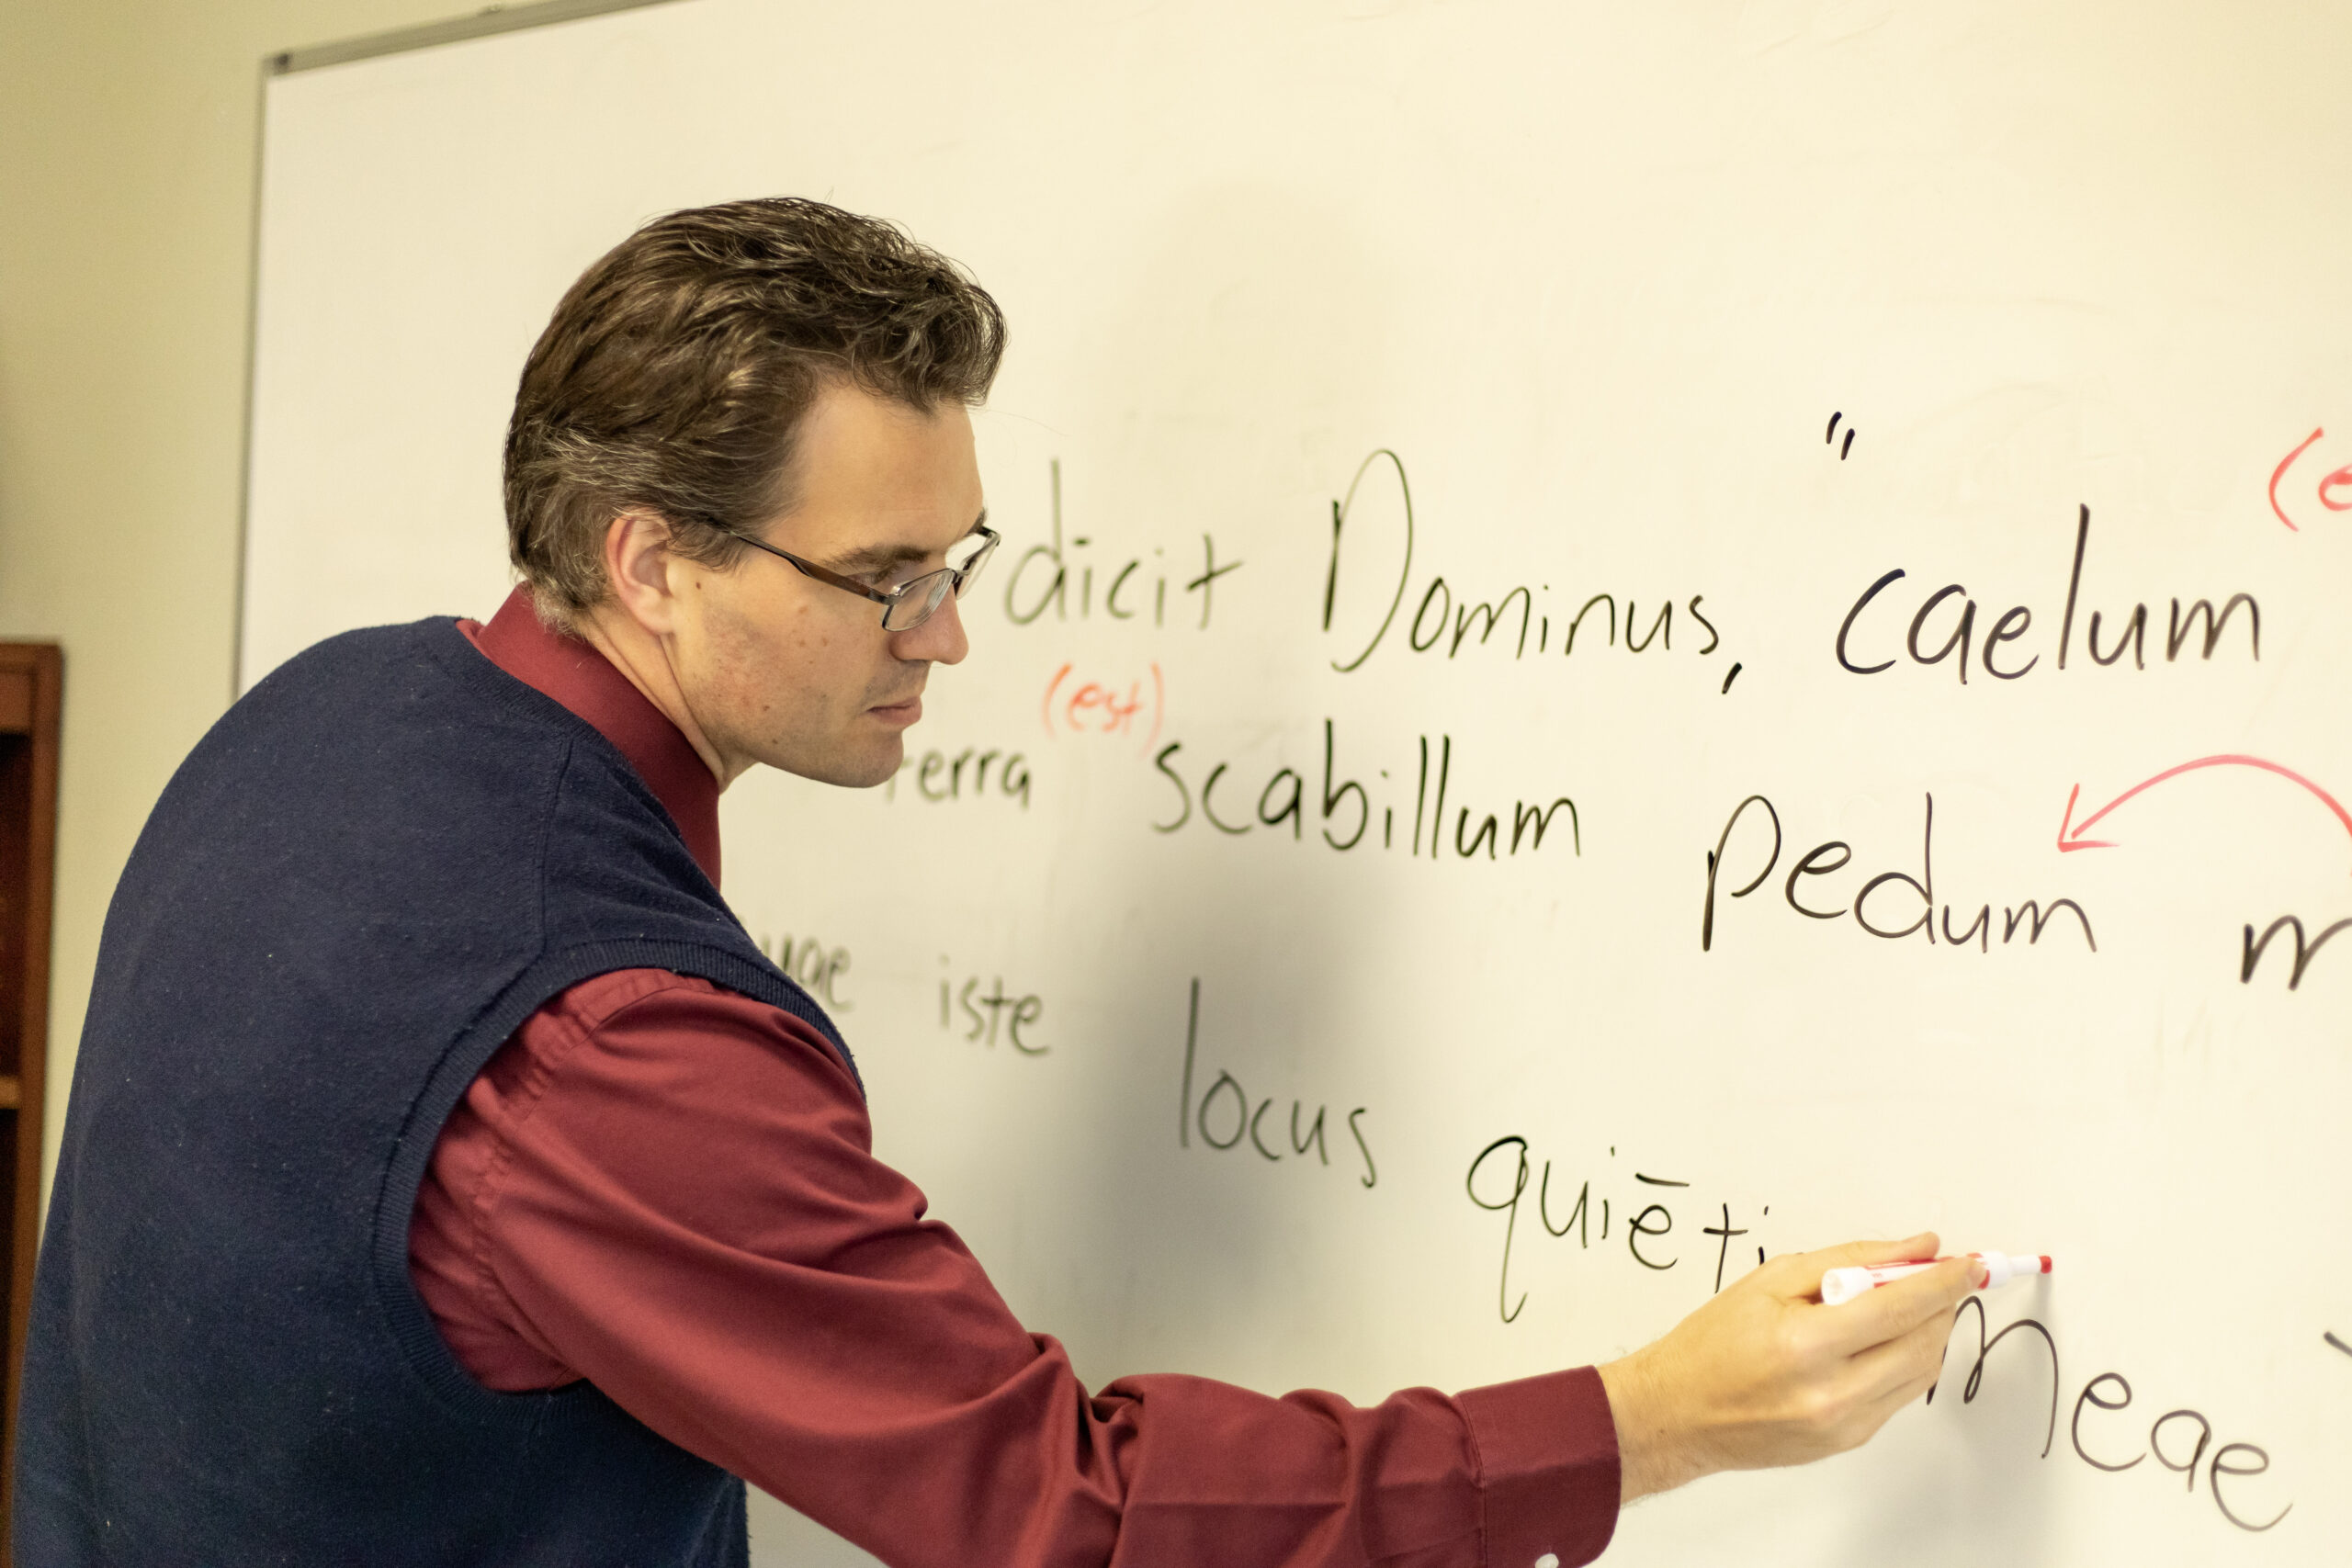 dicit Dominus, "caelum
terra (est) scabillum pedum
iste locus quiēti meae